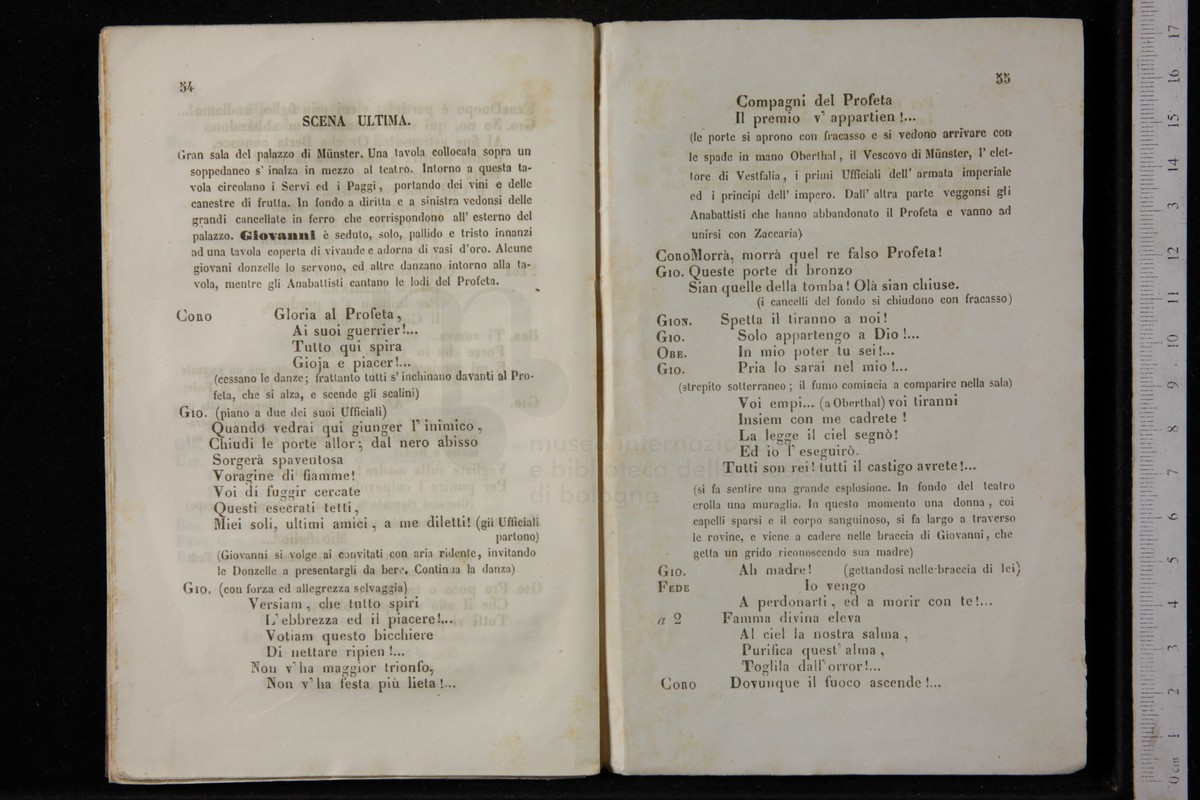 54
SCENA ULTIMA.
Gran sala del palazzo di Münster. Una tavola collocata sopra un
soppedaneo s' inalza in mezzo al teatrò. Intorno a questa ta-
vola circolano i Servi ed i Paggi, portando dei vini e delle
canestre di frutta. In fondo a diritta e a sinistra vedonsi delle
grandi cancellate in ferro che corrispondono all' esterno del
palazzo. Giovanni è seduto, solo, pallido e tristo innanzi
ad una tavola coperta di vivande e adorna di vasi d'oro. Alcune
giovani donzelle lo servono, ed altre danzano intorno alla ta-
vola, mentre gli Anabattisti cantano le lodi del Profeta.
Coro Gloria al Profeta,
Ai suoi guerrier!...
Tutto qui spira
Gioja e piacer!...
(cessano le danze; frattanto tutti s' inchinano davanti al Pro-
feta, che si alza, e scende gli scalini)
Gio. (piano a due dei suoi Ufficiali)
Quando vedrai qui giunger l' inimico,
Chiudi le porte allor; dal nero abisso
Sorgerà spaventosa
Voragine di fiamme!
Voi di fuggir cercate
Questi esecrati tetti,
Miei soli, ultimi amici, a me diletti! (gii Ufficiali
partono)
(Giovanni si volge ai convitati con aria ridente, invitando
le Donzelle a presentargli da bere. Continua la danza)
Gio. (con forza ed allegrezza selvaggia)
Versiam, che tutto spiri
L' ebbrezza ed il piacere!...
Votiam questo bicchiere
Di nettare ripien!...
Non v' ha maggior trionfo,
Non v' ha festa più lieta!...
55
Compagni del Profeta
Il premio v' appartien!...
(le porte si aprono con fracasso e si vedono arrivare con
le spade in mano Oberthal, il Vescovo di Münster, l' elet-
tore di Vestfalia, i primi Ufficiali dell' armata imperiale
ed i principi dell' impero. Dall' altra parte veggonsi gli
Anabattisti che hanno abbandonato il Profeta e vanno ad
unirsi con Zaccaria)
CoroMorrà, morrà quel re falso Profeta!
Gio. Queste porte di bronzo
Sian quelle della tomba! Olà sian chiuse.
(i cancelli del fondo si chiudono con fracasso)
Gion. Spetta il tiranno a noi!
Gio. Solo appartengo a Dio!...
Obe. In mio poter tu sei!...
Gio. Pria lo sarai nel mio!...
(strepito sotterraneo; il fumo comincia a comparire nella sala)
Voi empi... (a Oberthal) voi tiranni
Insiem con me cadrete!
La legge il ciel segnò!
Ed io l' eseguirò.
Tutti son rei! tutti il castigo avrete!...
(si fa sentire una grande esplosione. In fondo del teatro
crolla una muraglia. In questo momento una donna, coi
capelli sparsi e il corpo sanguinoso, si fa largo a traverso
le rovine, e viene a cadere nelle braccia di Giovanni, che
getta un grido riconoscendo sua madre)
Gio. Ah madre! (gettandosi nelle braccia di lei)
Fede Io vengo
A perdonarti, ed a morir con te!...
a 2 Famma divina eleva
Al ciel la nostra salma,
Purifica quest' alma,
Toglila dall' orror!...
Coro Dovunque il fuoco ascende!...
museo internazio
e biblioteca dell
di bologna
0 cm 1 2 3 4 5 6 7 8 9 10 11 12 13 14 15 16 17